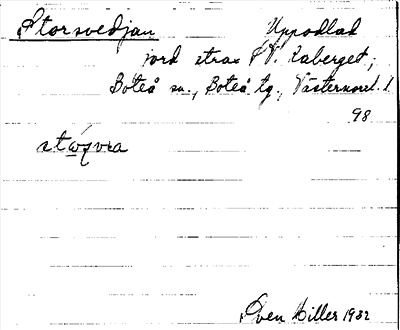 Storsvedjan Uppodlad
jord strax V. Kaberget,
Boteå sn., Boteå tg., Västernorrl. l.
98
Sven Hiller 1932